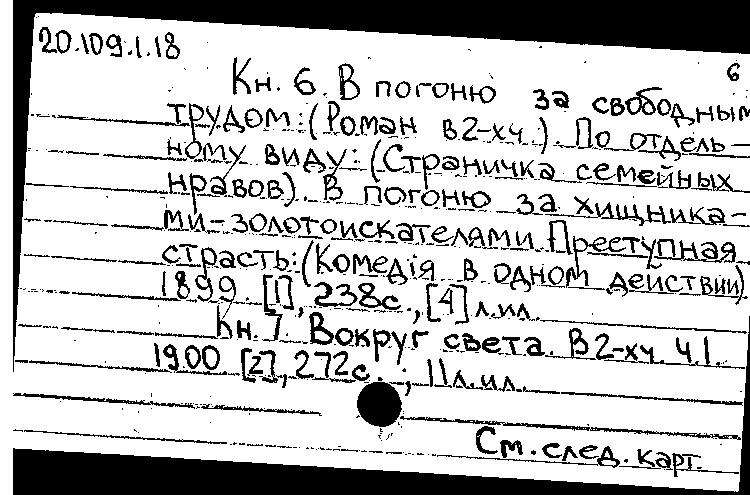 20.109.1.18
6
Кн. 6. В погоню за свободным
трудом: (Роман в 2-х ч.). По отдель-
ному виду: (Страничка семейных
нравов). В погоню за хищника-
ми-золотоискателями. Преступная
страсть: (Комедiя в одном действии).
1899. [1], 238с., [4] л.ил.
Кн. 7. Вокруг света. В 2-х ч. Ч.1.
1900 [2], 272с. ; 11л.ил.
См. след. карт.